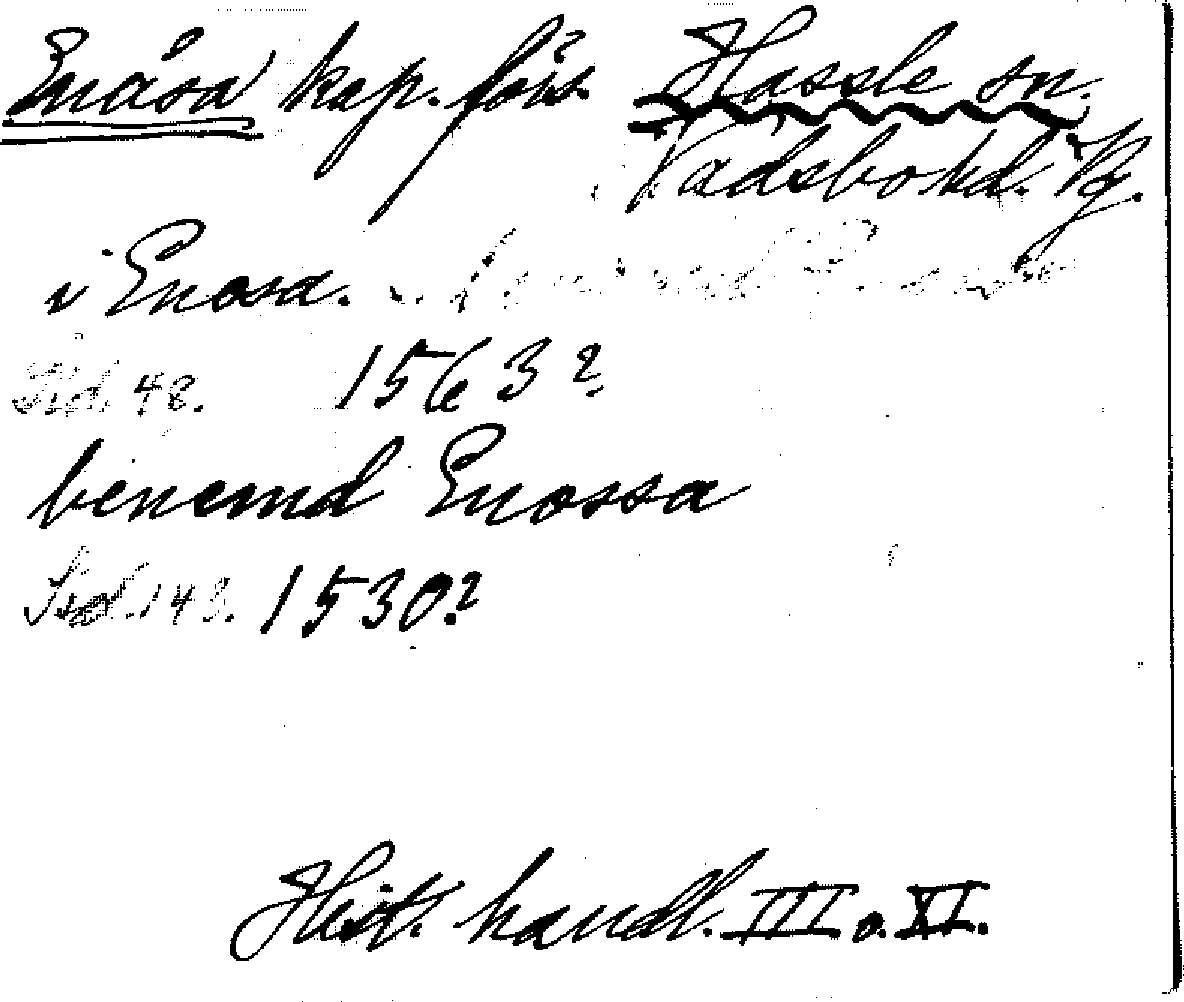 Enåsa kap. förs. Hassle sn.
Vadsbo hd. Vg.
i Enosa.
Sid. 48. 1563?
benemd Enossa
Sid. 148. 1530?
Hist. handl. III o. XI.